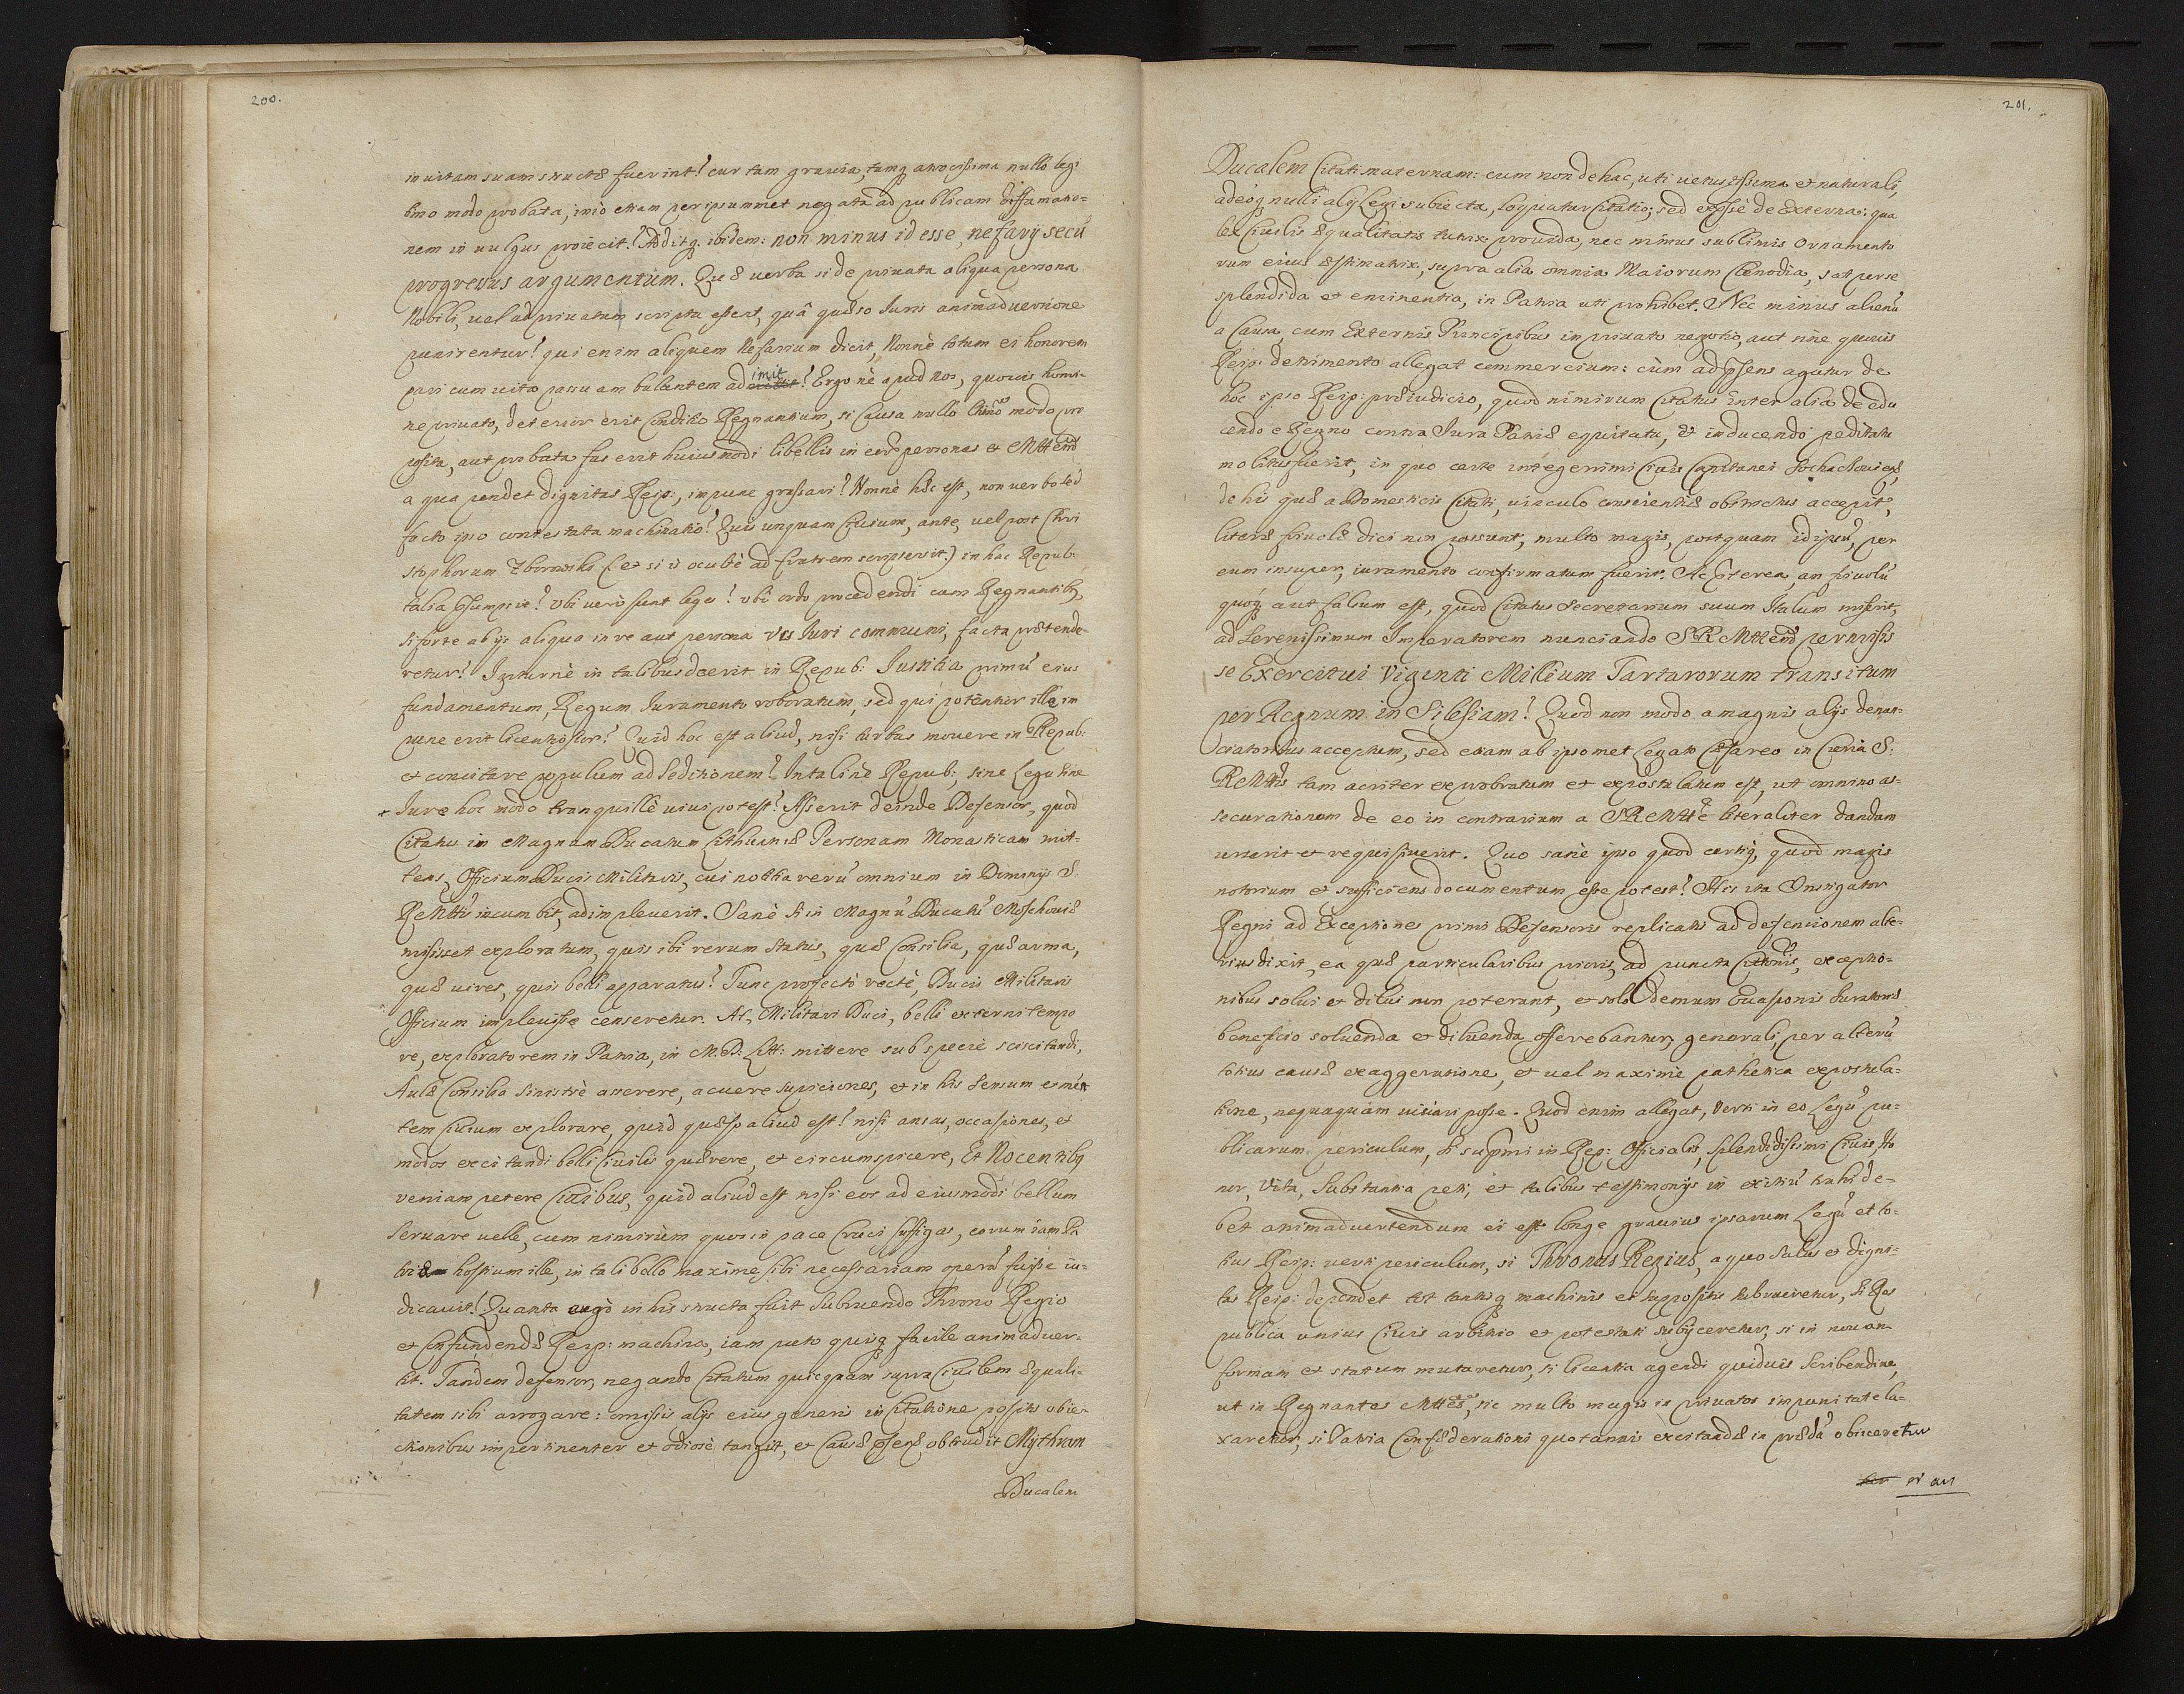 200.
in vitam suam structæ fuerint? cur tam gravia, tamq; atrocissima nullo legi
timo modo probata, imò etiam per ipsummet negata ad publicam diffamatio=
nem in vulgus proiecit? Additq; ibidem: non minus id esse, nefarij secū
progressus argumentum. Quæ verba si de privata aliqua persona
Nobili, vel ad privatum scripta essent, quâ quæso Iuris animadversione
punirentur? qui enim aliquem Nefarium dicit, Nonnè totum ei honorem
pari cum vita passu ambulantem adimit? Ergo nè apud nos, quovis homi=
ne privato, deterior erit Conditio Regnantium, si Causa nullo modo pro
posita, aut probata fas erit huiusmodi libellis in eorū personas et Mttem
a qua pendet dignitas Reip:, impune grassari? Nonnè hæc est, non verbo sed
facto ipso contestata machinatio? Quis unquam Civium, ante, vel post Chri
stophorum Zborowski (et si is occultè ad fratrem scripserit) in hac Repub:
talia præsumpsit? Vbi verò sunt leges? Vbi ordo procedendi cum Regnantibq
si forte ab ijs aliqua in re aut persona vis Iuri communi, facta prætende
retur? Igiturnè in talibus deerit in Repub: Iustitia primū eius
fundamentum, Regum Iuramento roboratum, sed qui potentior ille im
pune erit licentiosior? Quid hoc est aliud, nisi turbas movere in Repub:
et concitare populum ad Seditionem? In talinè Repub:, sine Lege sine
Iure hoc modo tranquillè vivi potest? Asserit deinde Defensor, quod
Citatus in Magnum Ducatum Lithuaniæ Personam Monasticam mit=
tens, Officium Ducis Militaris, cui notitia rerū omnium in Dominijs S.
RcMttis incumbit, adimpleverit. Sanè si in Magnū Ducatū Moschoviæ
misisset exploratum, quis ibi rerum Status, quæ Consilia, quæ arma,
quæ vires, quis belli apparatus? Tunc profectò rectè, Ducis Militaris
Officium implevisse censeretur. At, Militari Duci, belli externi tempo
re, exploratorem in Patria, in M.D: Litt: mittere sub specie sciscitandi,
Aulæ Consilia sinistrè asserere, acuere suspiciones, et in his Sensum et mēn
tem Civium explorare, quid quæso aliud est? nisi ansas, occasiones, et
modos excitandi belli Civilis quærere, et circumspicere, Et Nocentibq
veniam petere Civibus, quid aliud est nisi eos ad eiusmodi bellum
Servare velle, cum nimirùm quos in pace Cruci suffigas, eorum iam Pa
triæ hostium ille, in tali bello maxime sibi necessariam operā fuisse iu=
dicavit? Quanta ergò in his structa fuit Subruendo Throno Regio
et confundendæ Reip: machina, iam puto quisq; facile animadver=
tit. Tandem defensor, negando Citatum quicquam supra Civilem æquali=
tatem sibi arrogare: omissis alijs eius generis in Citatione positis obie=
ctionibus impertinenter et odiosè tangit, et Causæ præsenti obtrudit Mythram
Ducalem
201.
Ducalem Citati maternam: cum non de hac, uti vetustissima et naturali,
adeòq; nulli alij Legi subiecta, loquatur Citatio; sed expresse de Externa: qua
lex Civilis æqualitatis tutrix provida, nec minus sublimis Ornamento
rum eius æstimatrix, supra alia omnia Maiorum Cænodia, sat per se
splendida et eminentia, in Patria uti prohibet. Nec minus alienū
a Causa, cum Externis Principibus in privato negotio, aut sine quovis
Reip: detrimento allegat commercium: cùm ad præsens agatur de
hoc ipso Reip: præiudicio, quod nimirum Citatus inter alia de edu
cendo e Regno contra Iura Patriæ equitatu, et inducendo peditatu
molitus fuerit, in quo certe integerrimi Civis Capitanei Sochacioviens,
de his quæ a Domesticis Citati, vinculo conscientiæ obstrictus accepit,
literæ frivolæ dici non possunt, multo magis, postquam id ipsū, per
eum insuper, iuramento confirmatum fuerit. Ac præterea, an frivolū
quoq; aut falsum est, quod Citatus Secretarium suum Italum miserit,
ad Serenissimum Imperatorem nunciando SRcMttem permissis
se Exercitui Viginti Millium Tartarorum transitum
per Regnum in Silesiam? Quod non modo a magnis alijs denun=
ciatoribus acceptum, sed etiam ab ipsomet Legato Cæsareo in Curia S:
RcMttis tam acriter exprobratum et expostulatum est, ut omnino as=
securationem de eo in contrarium a SRcMtte literaliter dandam
urserit et requisiverit. Quo sanè ipso quod certiq, quod magis
notorium et sufficiens documentum esse potest? His ita Instigator
Regni ad Exceptiones primi Defensoris replicatis ad defensionem alte=
rius dixit, ea quæ particularibus prioris, ad puncta Citationis, exceptio=
nibus solvi et dilui non poterant, et solo demum Evasionis Iuratoriæ
beneficio solvenda et diluenda offerebantur, generali, per alterū
totius causæ exaggeratione, et vel maximè pathetica expostula=
tione, nequaquam vitiari posse. Quod enim allegat, Verti in eo Legū pu=
blicarum periculum, si supremi in Rep: Officialis, splendidissimi Civis, ho
nor, Vita, Substantia peti, et talibus testimonijs in exitiū trahi de=
bet animadvertendum ei est longe gravius ipsarum Legū et to=
tius Reip: verti periculum, si Thronus Regius, a quo Salus et digni=
tas Reip: dependet tot tantisq machinis et suppositis subrueretur, si Res
publica unius Civis arbitrio et potestati subijceretur, si in novam
formam et statum mutaretur, si licentia agendi quidvis Scribendive,
ut in Regnantes Mttes, sic multo magis in privatos impunitate la=
xaretur, si Patria Confæderationi quotannis excitandæ in prædā obiiceretur